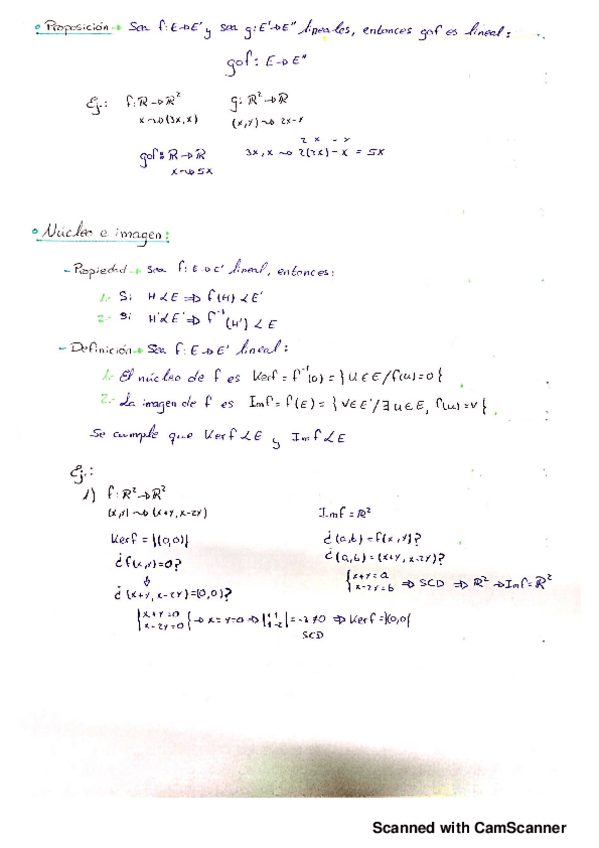 • Proposición → Sea f: E→E' y sea g: E'→E'' lineales, entonces gof es lineal:
gof: E→E''
Ej.: f: ℝ→ℝ² g: ℝ²→ℝ
x ⇝ (3x, x) (x, y) ⇝ 2x-y
2 x - y
gof: ℝ→ℝ 3x, x ⇝ 2(3x) - x = 5x
x ⇝ 5x
• Núcleo e imagen:
- Propiedad → Sea f: E→E' lineal, entonces:
1.- Si H<E ⇒ f(H)<E'
2.- Si H'<E' ⇒ f⁻¹(H')<E
- Definición → Sea f: E→E' lineal:
1.- El núcleo de f es Kerf = f⁻¹(0) = {u∈E / f(u)=0}
2.- La imagen de f es Imf = f(E) = {v∈E' / ∃ u∈E, f(u)=v}
Se cumple que Kerf<E y Imf<E
Ej.:
1) f: ℝ²→ℝ²
(x,y) ⇝ (x+y, x-2y) Imf = ℝ²
Kerf = {(0,0)} ¿(a,b) = f(x,y)?
¿f(x,y)=0? ¿(a,b) = (x+y, x-2y)?
⇕ {x+y=a x-2y=b ⇒ SCD ⇒ ℝ² → Imf = ℝ²
¿(x+y, x-2y) = (0,0)?
{x+y=0 x-2y=0} → x=y=0 ⇒ |1 1 1 -2| = -3 ≠ 0 ⇒ Kerf = {0,0}
SCD
Scanned with CamScanner